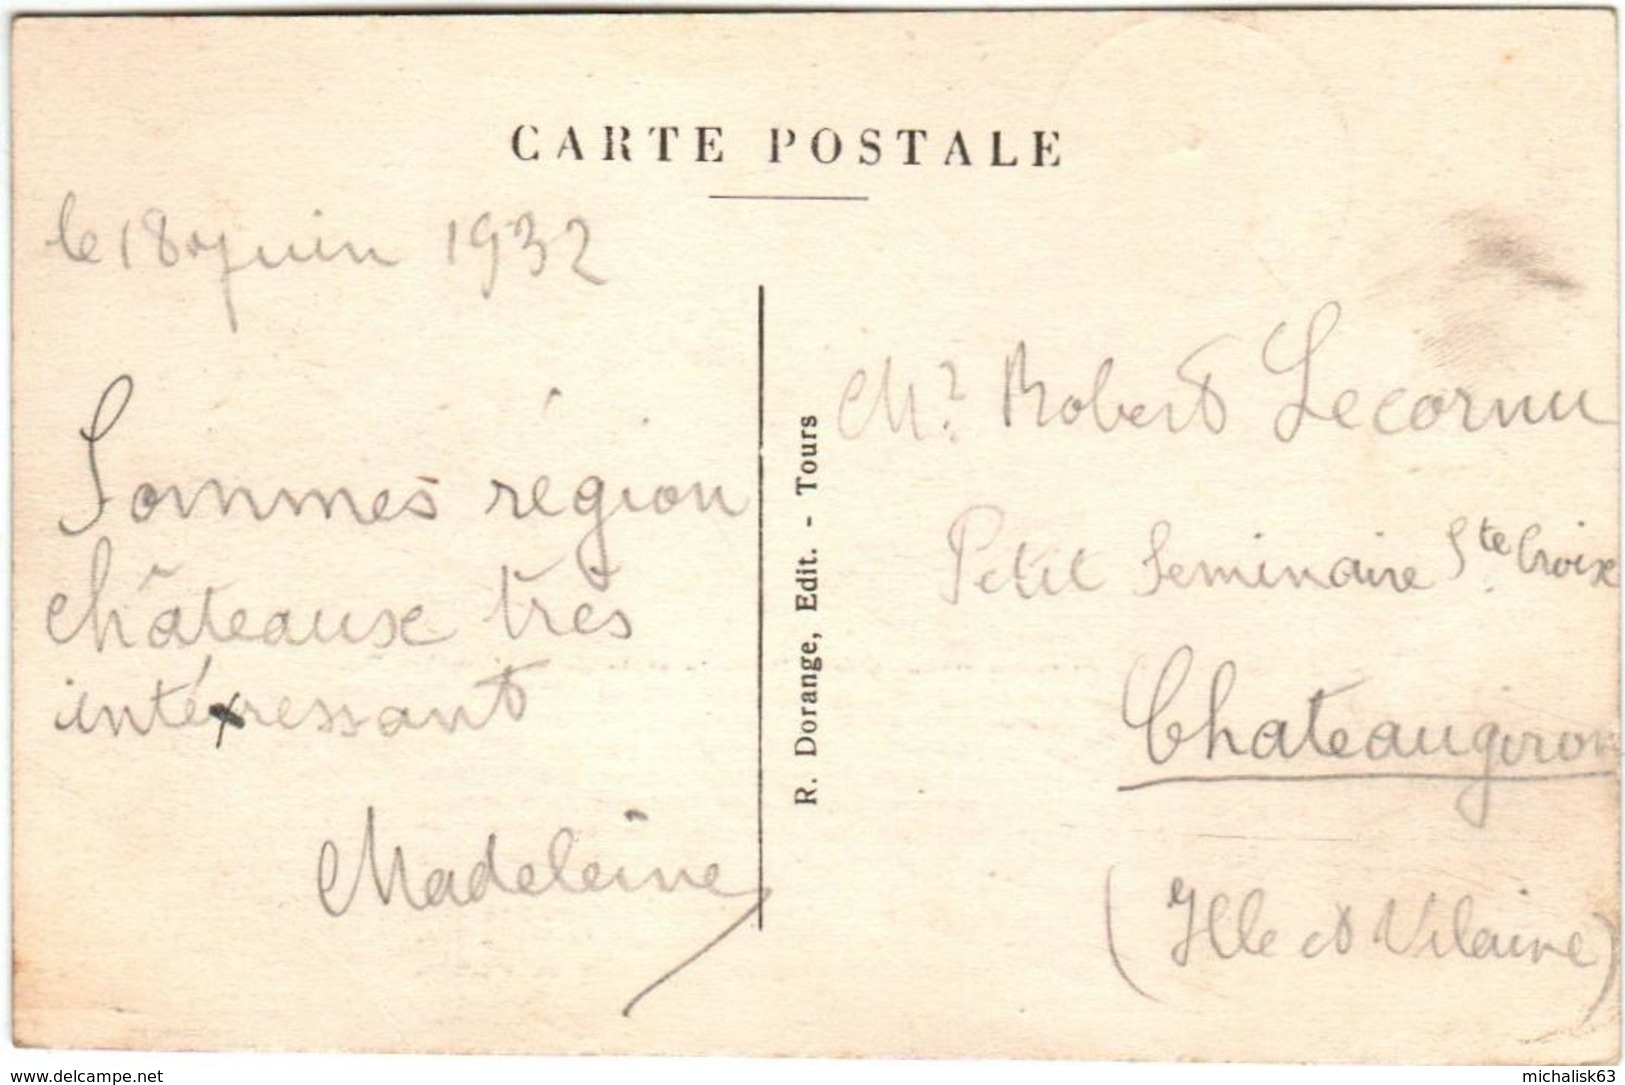 CARTE POSTALE
le 18 juin 1932
Sommes région
châteaux très
intéressant
Madeleine
R. Dorange, Edit. - Tours
Mr Robert Lecornu
Petit Seminaire Ste Croix
Chateaugiron
(Ille et Vilaine)
www.delcampe.net
michalisk63